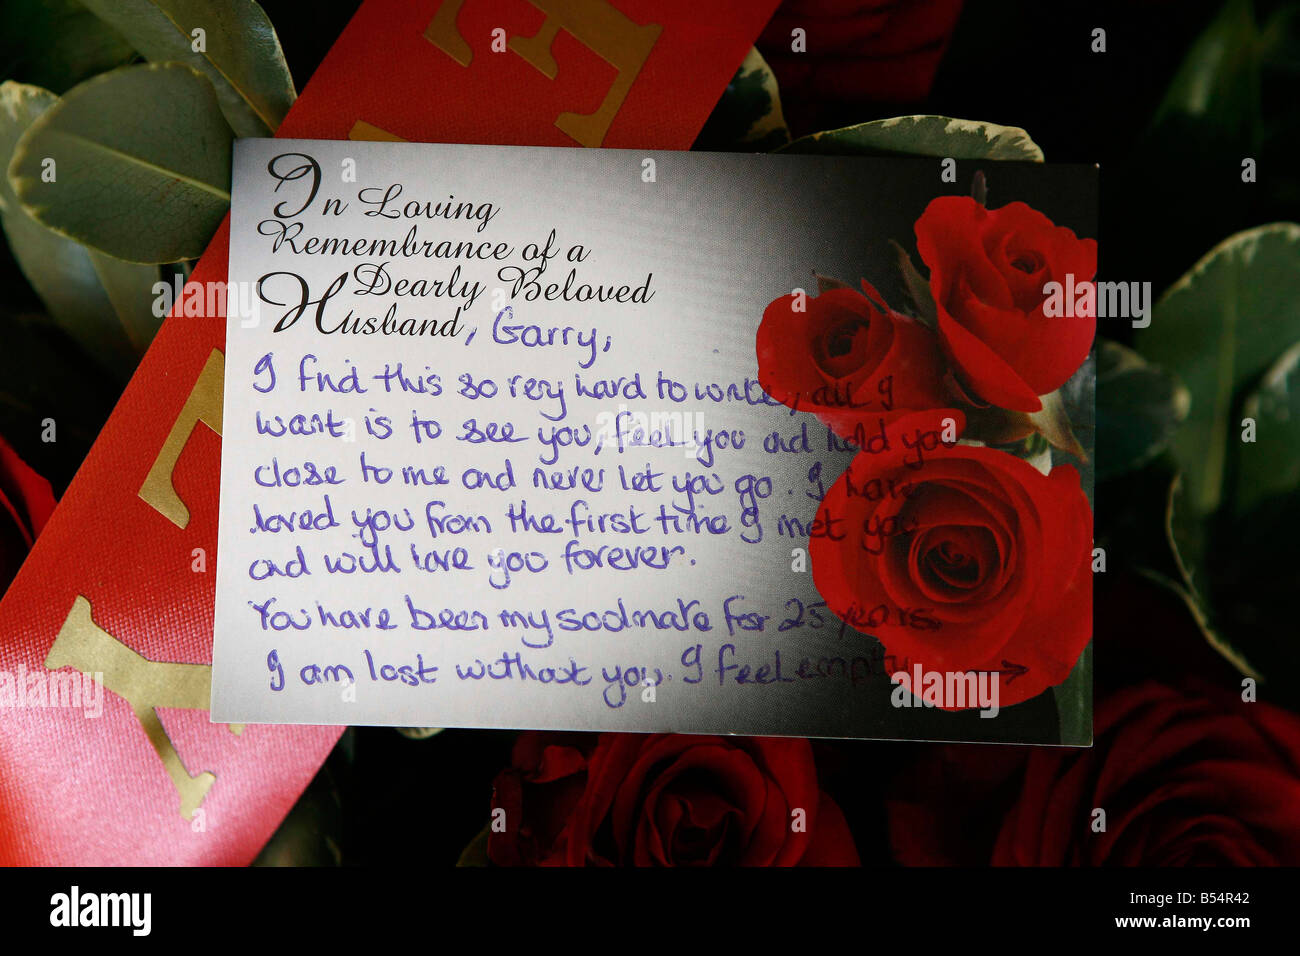 In Loving
Remembrance of a
Dearly Beloved
Husband, Garry,
I find this so very hard to write, all I
want is to see you, feel you and hold you
close to me and never let you go. I have
loved you from the first time I met you
and will love you forever.
You have been my soulmate for 25 years.
I am lost without you. I feel empty →
alamy
Image ID: B54R42
www.alamy.com